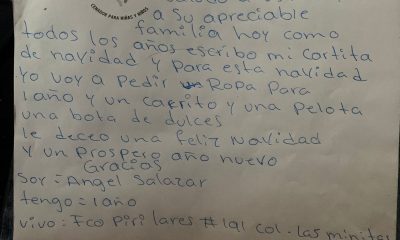 COMEDOR PARA NIÑAS Y NIÑOS
a su apreciable
familia hoy como
todos los años escribo mi cartita
de navidad y para esta navidad
Yo voy a Pedir Ropa Para
1año y un carrito y una Pelota
una bota de dulces
le deceo una feliz Navidad
y un prospero año nuevo
Gracias
Soy = Angel Salazar
tengo = 1año
vivo = Fco Piri lares # 191 col. Las minitas